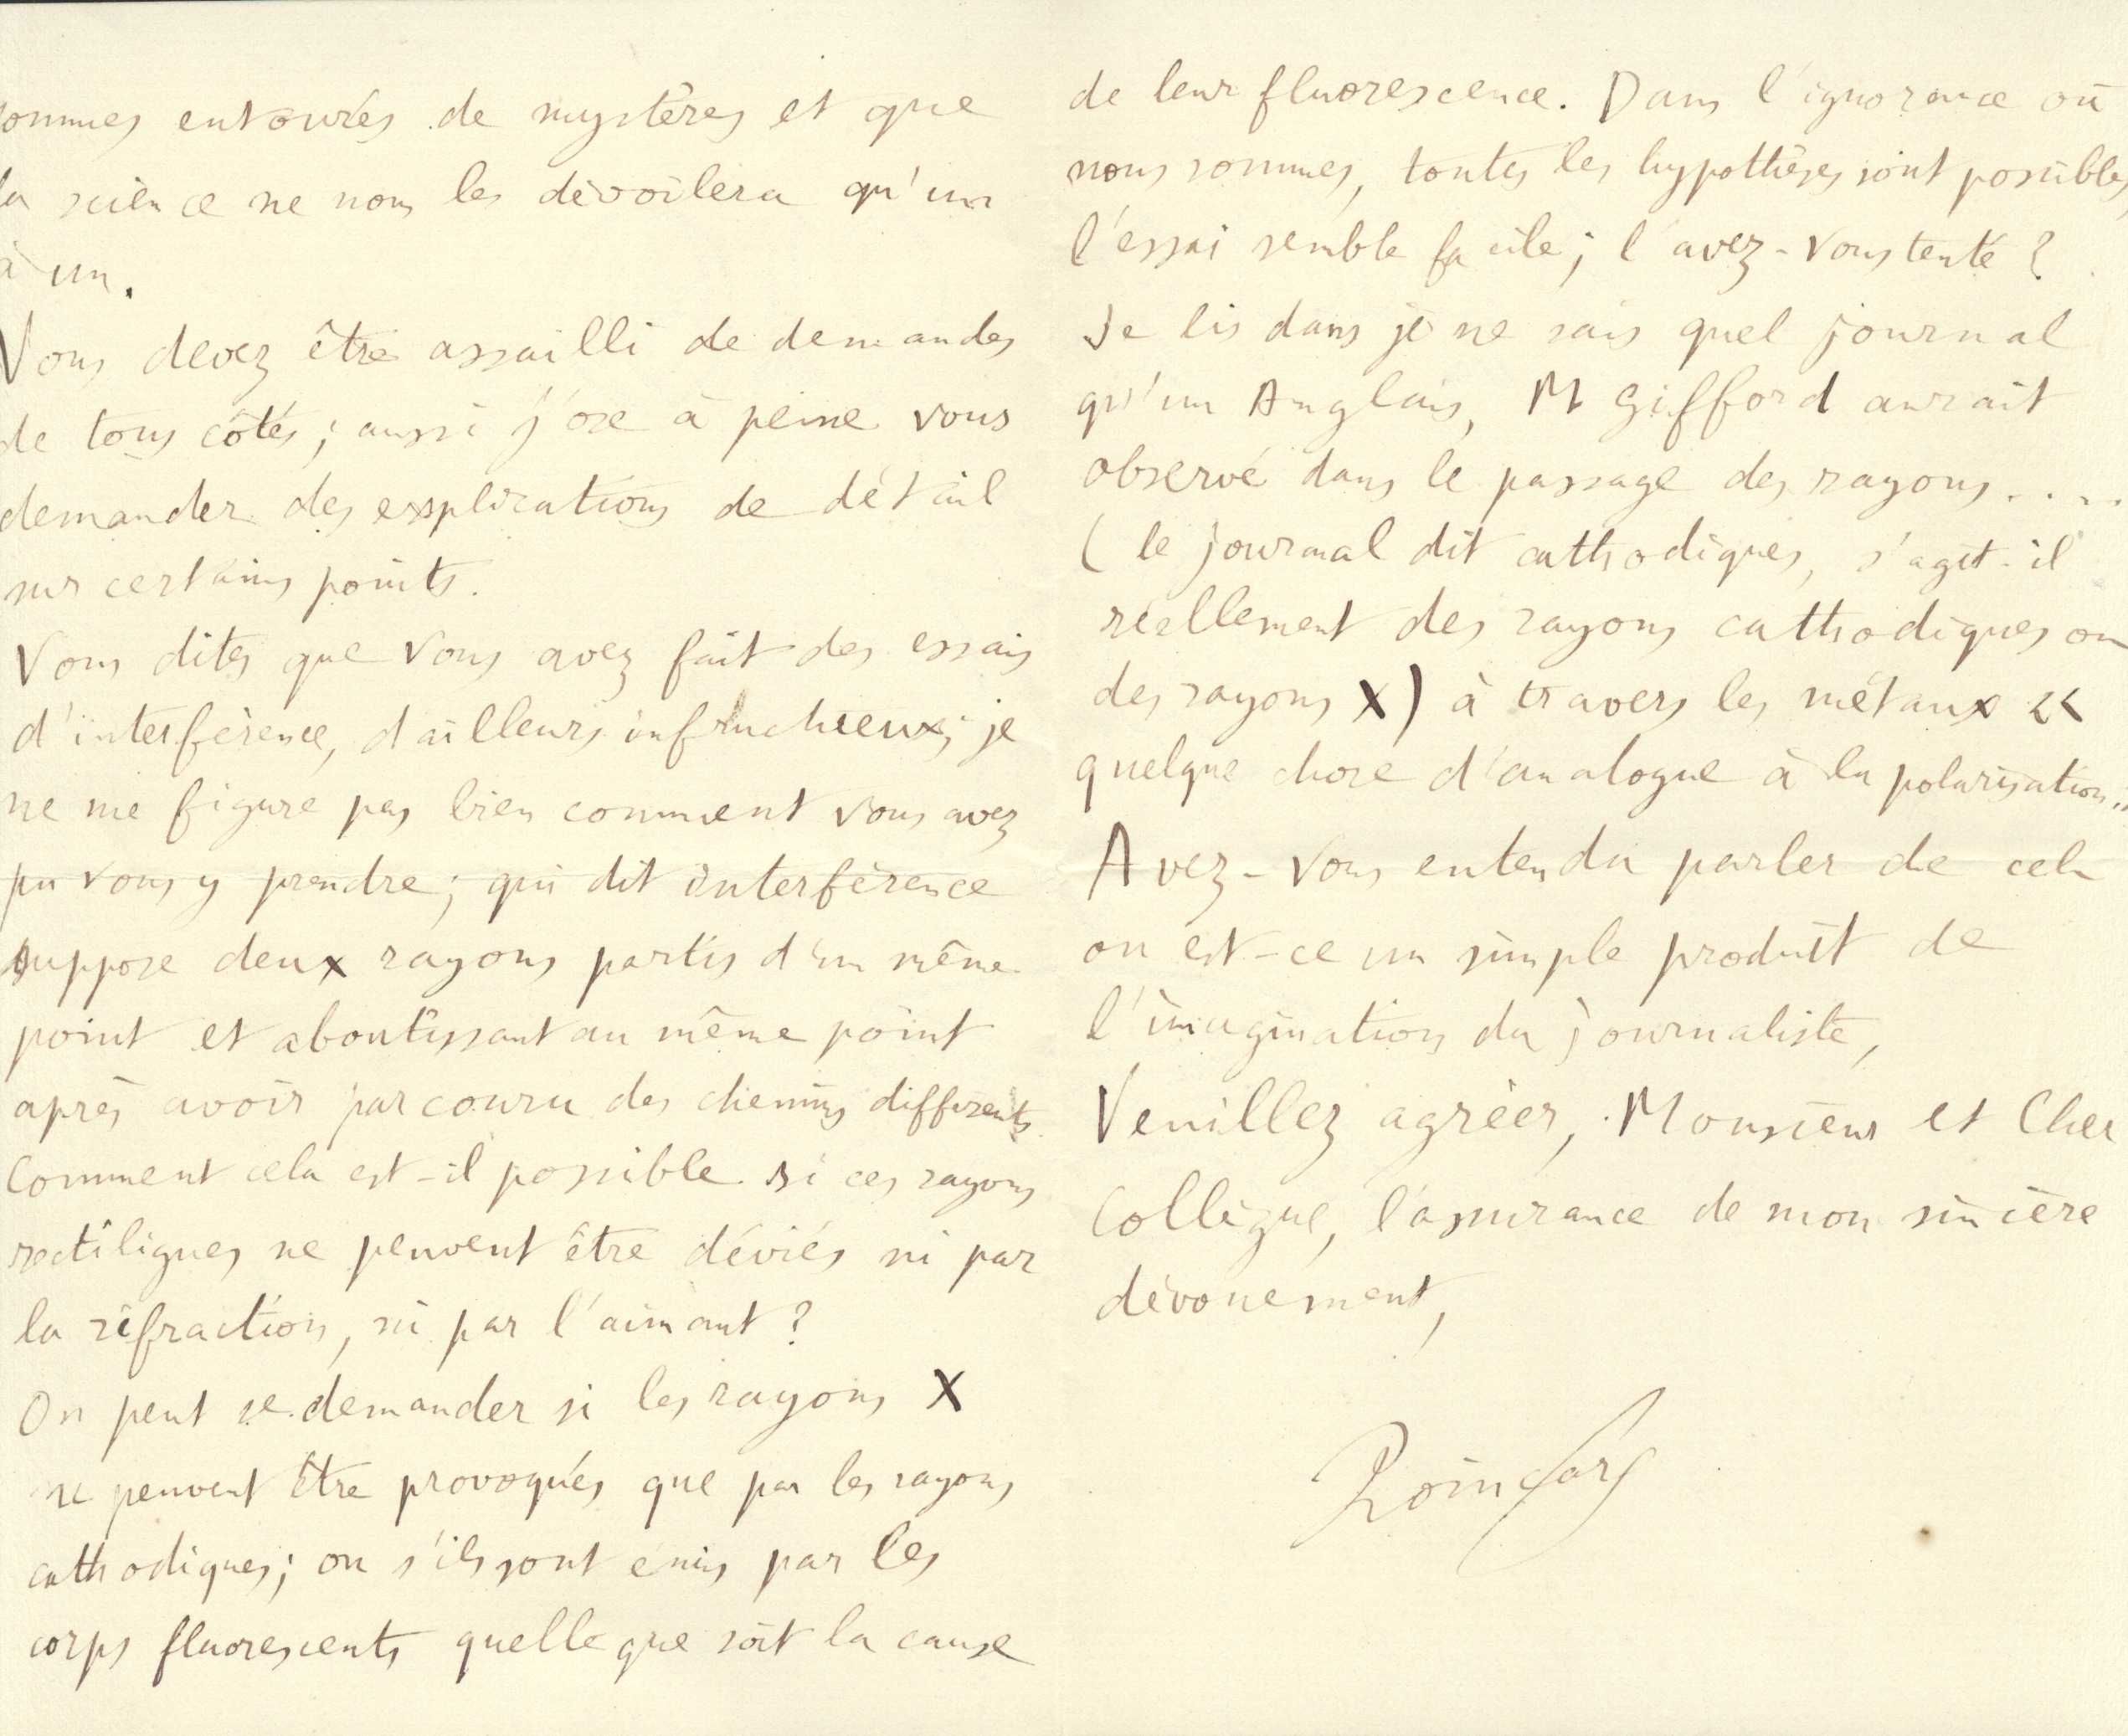 sommes entourés de mystères et que
la science ne nous les dévoilera qu'un
à un.
Vous devez être assailli de demandes
de tous côtés; aussi j'ose à peine vous
demander des explications de détail
sur certains points.
Vous dites que vous avez fait des essais
d'interférence, d'ailleurs infructueux; je
ne me figure pas bien comment vous avez
pu vous y prendre; qui dit interférence
suppose deux rayons partis d'un même
point et aboutissant au même point
après avoir parcouru des chemins différents.
Comment cela est-il possible si ces rayons
rectilignes ne peuvent être déviés ni par
la réfraction, ni par l'aimant?
On peut se demander si les rayons X
ne peuvent être provoqués que par les rayons
cathodiques; ou s'ils sont émis par les
corps fluorescents quelle que soit la cause
de leur fluorescence. Dans l'ignorance où
nous sommes, toutes les hypothèses sont possibles,
l'essai semble facile; l'avez-vous tenté?
Je lis dans je ne sais quel journal
qu'un Anglais, M Gifford aurait
observé dans le passage des rayons....
(le journal dit cathodiques, s'agit-il
réellement des rayons cathodiques ou
des rayons X) à travers les métaux «
quelque chose d'analogue à la polarisation »
Avez-vous entendu parler de cela
ou est-ce un simple produit de
l'imagination du journaliste,
Veuillez agréer, Monsieur et Cher
Collègue, l'assurance de mon sincère
dévouement,
Poincaré